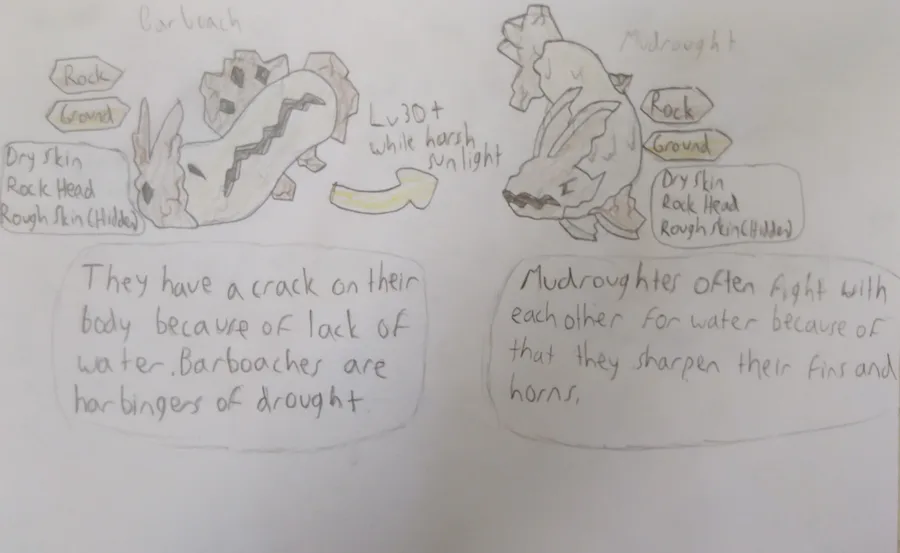 Barboach
Rock
Ground
Dry Skin
Rock Head
Rough Skin (Hidden)
Lv30+
while harsh
sunlight
Mudrought
Rock
Ground
Dry Skin
Rock Head
Rough Skin (Hidden)
They have a crack on their
body because of lack of
water. Barboaches are
harbingers of drought
Mudroughtes often fight with
each other for water because of
that they sharpen their fins and
horns.